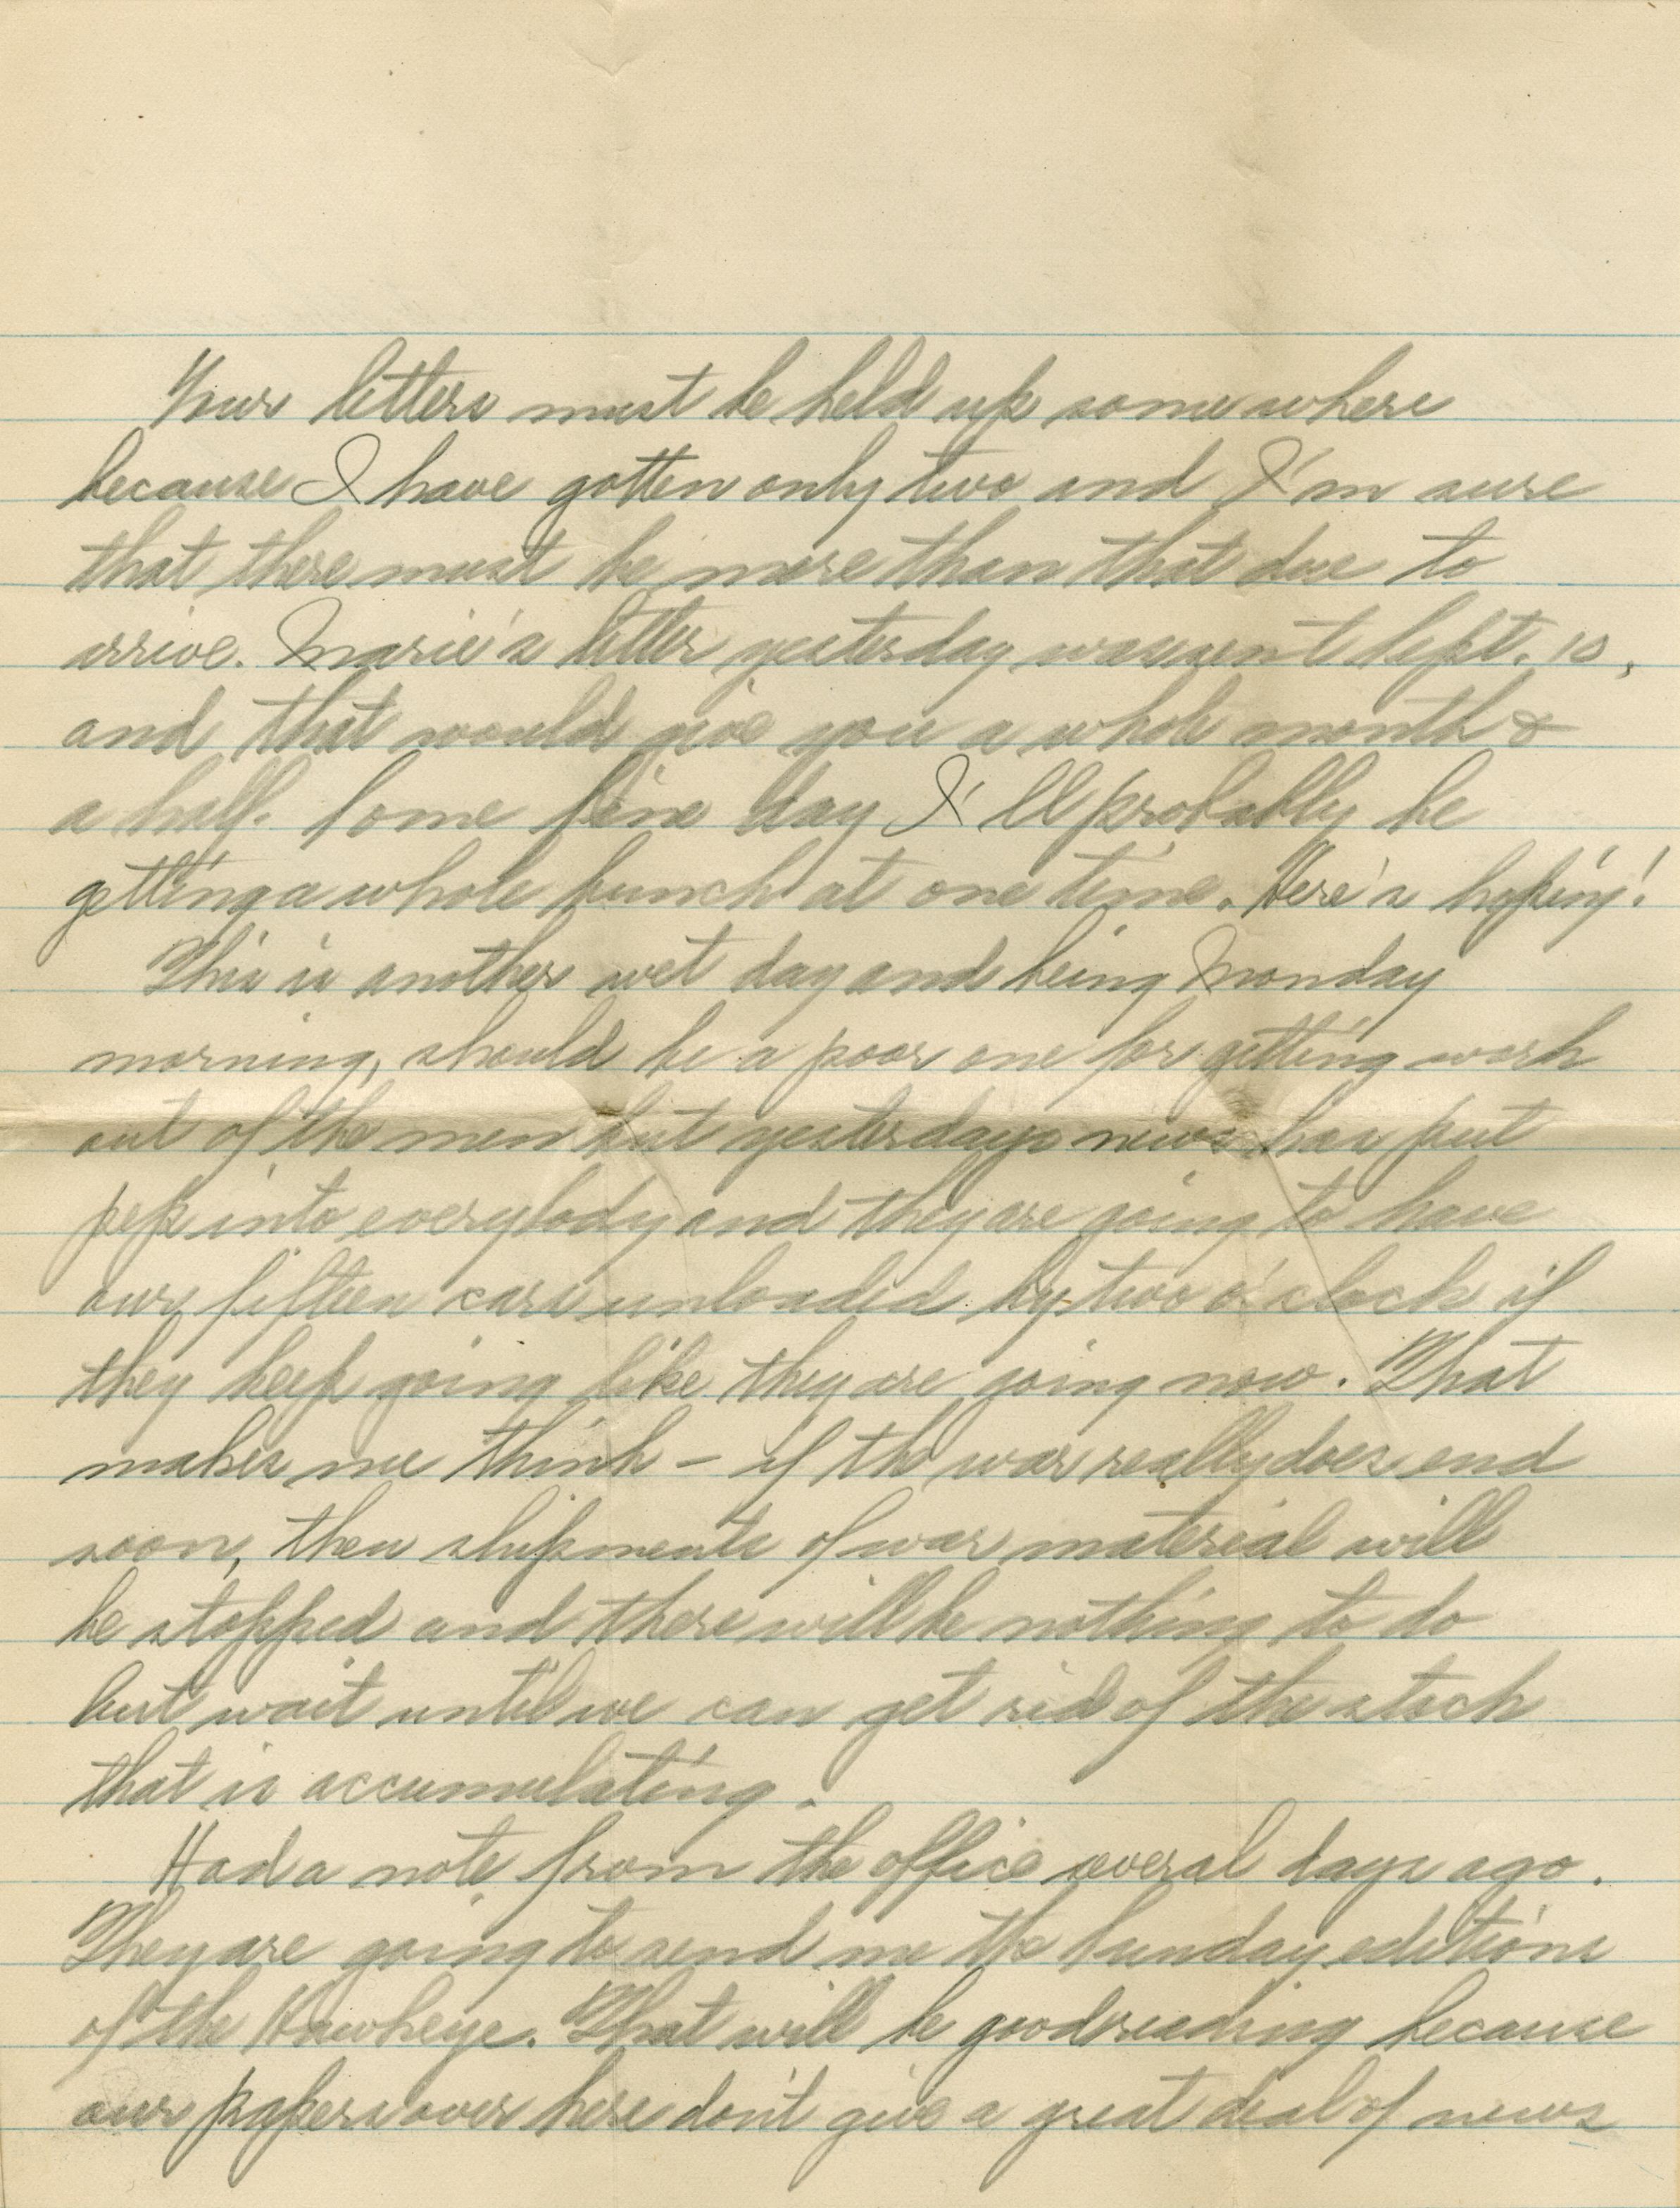 Your letters must be held up somewhere
because I have gotten only two and I'm sure
that there must be more than that due to
arrive. Marie's letter yesterday was sent Sept. 10,
and that would give you a whole month &
a half. Some fine day I'll probably be
getting a whole bunch at one time. Here's hoping!
This is another wet day and being Monday
morning, should be a poor one for getting work
out of the men but yesterdays news has put
pep into everybody and they are going to have
our fifteen cars unloaded by two o'clock if
they keep going like they are going now. That
makes me think – if the war really does end
soon, then shipments of war material will
be stopped and there will be nothing to do
but wait until we can get rid of the stock
that is accumulating.
Had a note from the office several days ago.
They are going to send me the Sunday editions
of the Hawkeye. That will be good reading because
our papers over here don't give a great deal of news